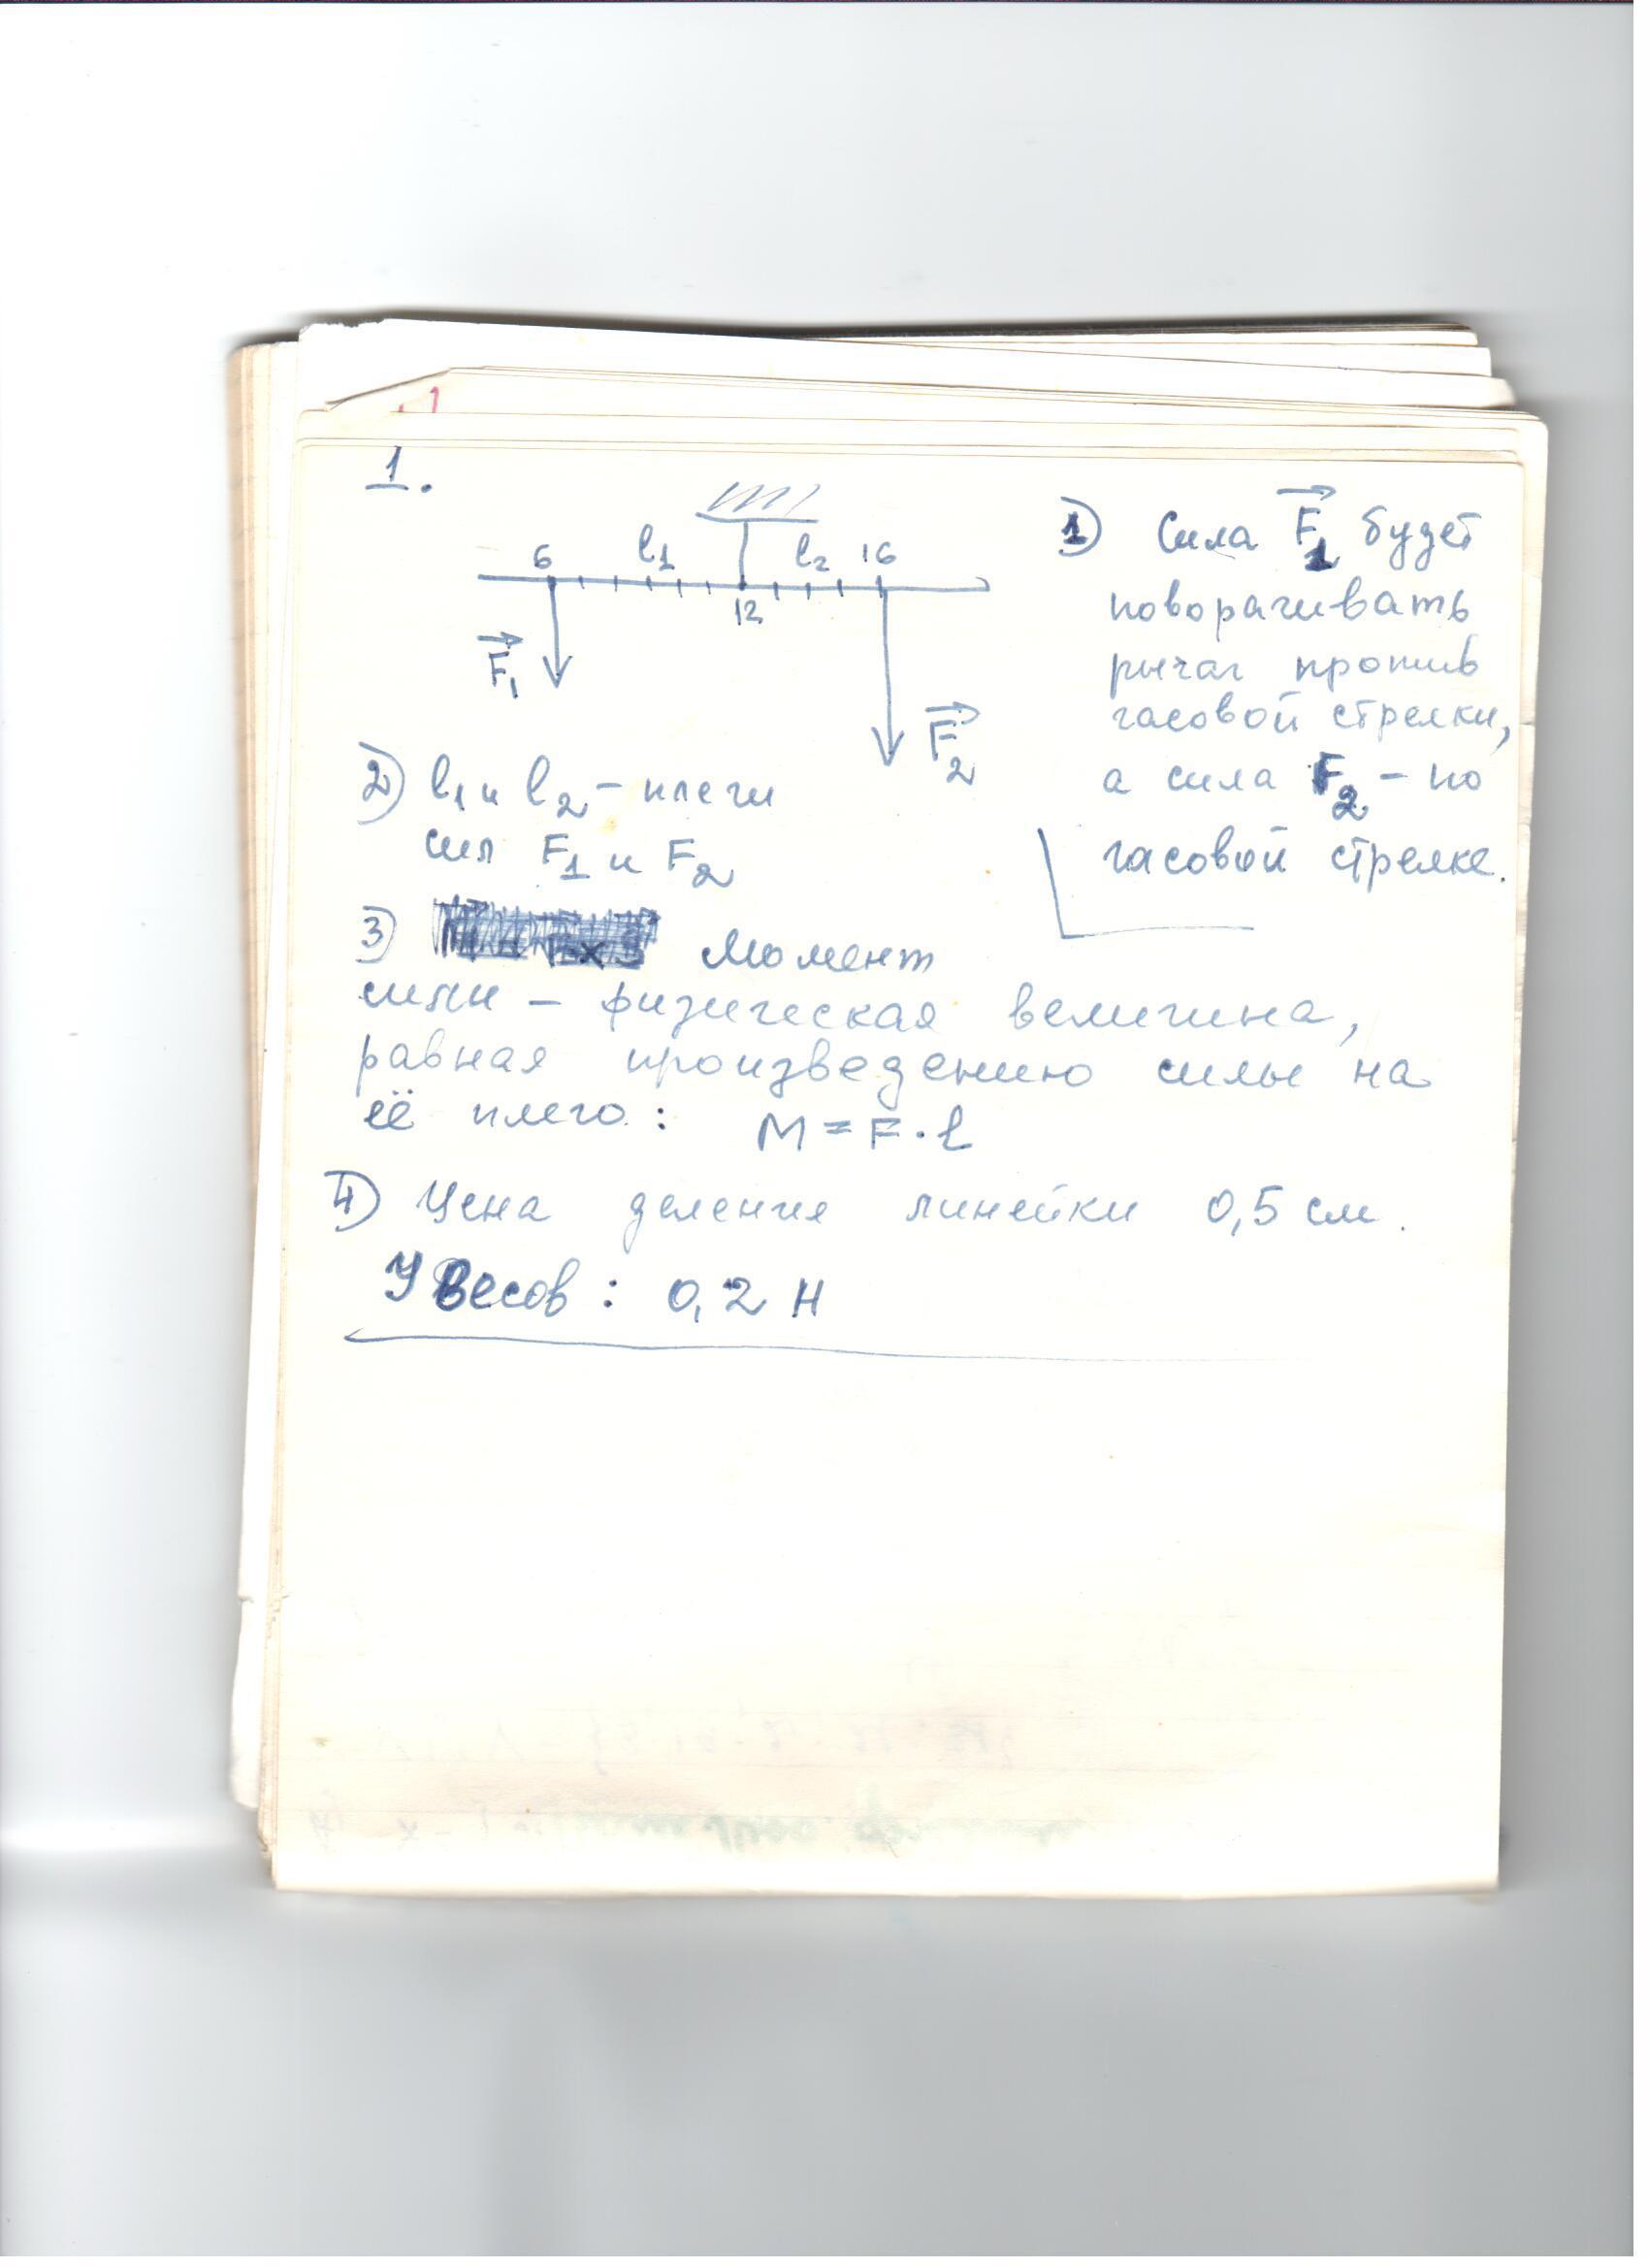 1.
6 l₁ l₂ 16
12
F₁
F₂
1) Сила F₁ будет
поворачивать
рычаг против
часовой стрелки,
а сила F₂ – по
часовой стрелке.
2) l₁ и l₂ – плечи
сил F₁ и F₂
3) Момент
силы – физическая величина,
равная произведению силы на
её плечо: M = F · l
4) Цена деления линейки 0,5 см.
У весов: 0,2 Н